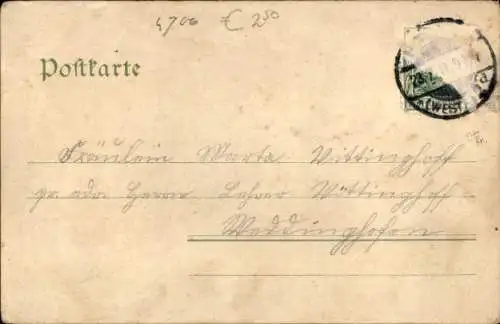 4700 € 250
Postkarte
(WEST
Fräulein Marta Vittinghoff
pr. adr. Herrn Lehrer Vittinghoff
Weddinghofen